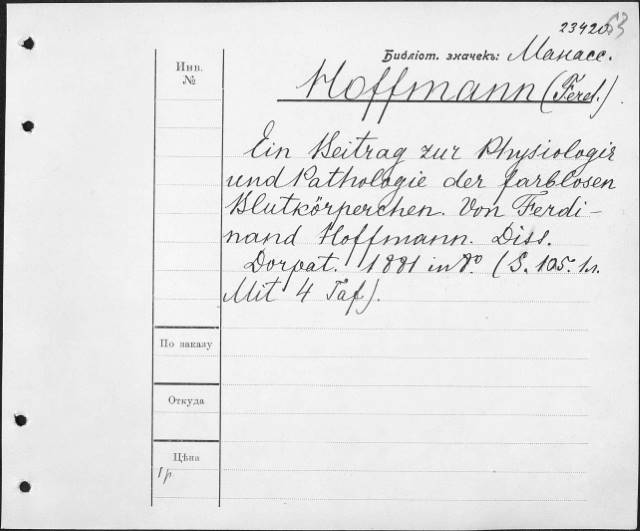 23420 63
Библіот. значекъ: Манасс.
Инв.
№
Hoffmann (Ferd.)
Ein Beitrag zur Physiologie
und Pathologie der farblosen
Blutkörperchen. Von Ferdi-
nand Hoffmann. Diss.
Dorpat. 1881 in 8º. (S. 105. 1л.
Mit 4 Taf).
По заказу
Откуда
Цѣна
1 р